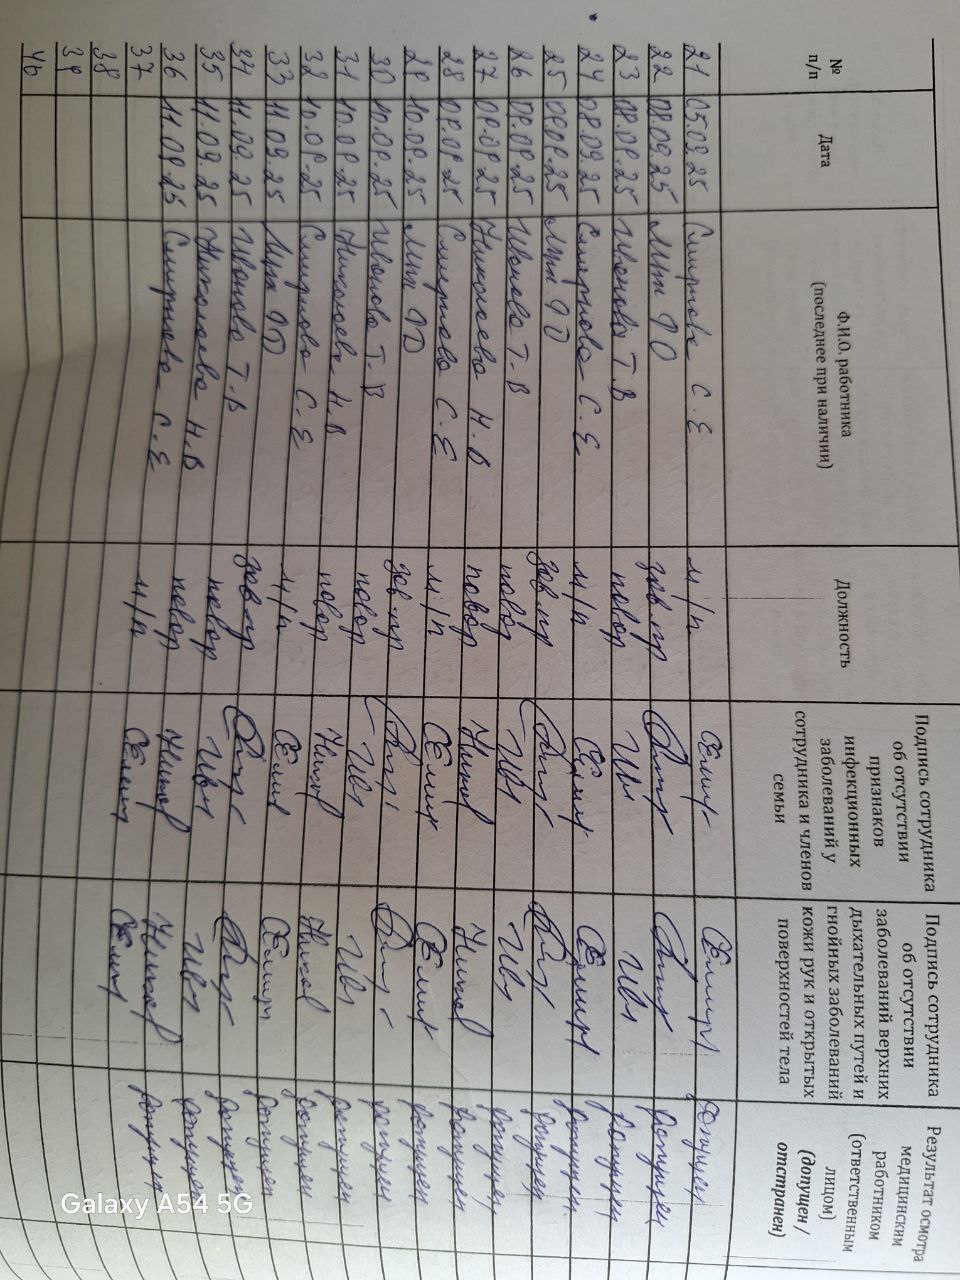 № п/п Дата Ф.И.О. работника (последнее при наличии) Должность Подпись сотрудника об отсутствии признаков инфекционных заболеваний у сотрудника и членов семьи Подпись сотрудника об отсутствии заболеваний верхних дыхательных путей и гнойных заболеваний кожи рук и открытых поверхностей тела Результат осмотра медицинским работником (ответственным лицом) (допущен / отстранен)
21 05.09.25 Смирнова С.Е м/п допущен
22 08.09.25 зав.пр допущен
23 08.09.25 Иванова Т.В повар Ив допущен
24 08.09.25 Смирнова С.Е м/п допущен.
25 09.09.25 зав.пр допущен
26 09.09.25 Иванова Т.В повар Ив Ив допущен
27 09.09.25 Николаева Н.В повар Никол Никол допущен
28 09.09.25 Смирнова С.Е м/п допущен
29 10.09.25 зав.пр допущен
30 10.09.25 Иванова Т.В повар Ив Ив допущен
31 10.09.25 Николаева Н.В повар Никол Никол допущен
32 10.09.25 Смирнова С.Е м/п допущен
33 11.09.25 зав.пр допущен
34 11.09.25 Иванова Т.В повар Ив Ив допущен
35 11.09.25 Николаева Н.В повар Никол Никол допущен
36 11.09.25 Смирнова С.Е м/п допущен
37
38
39
40
Galaxy A54 5G